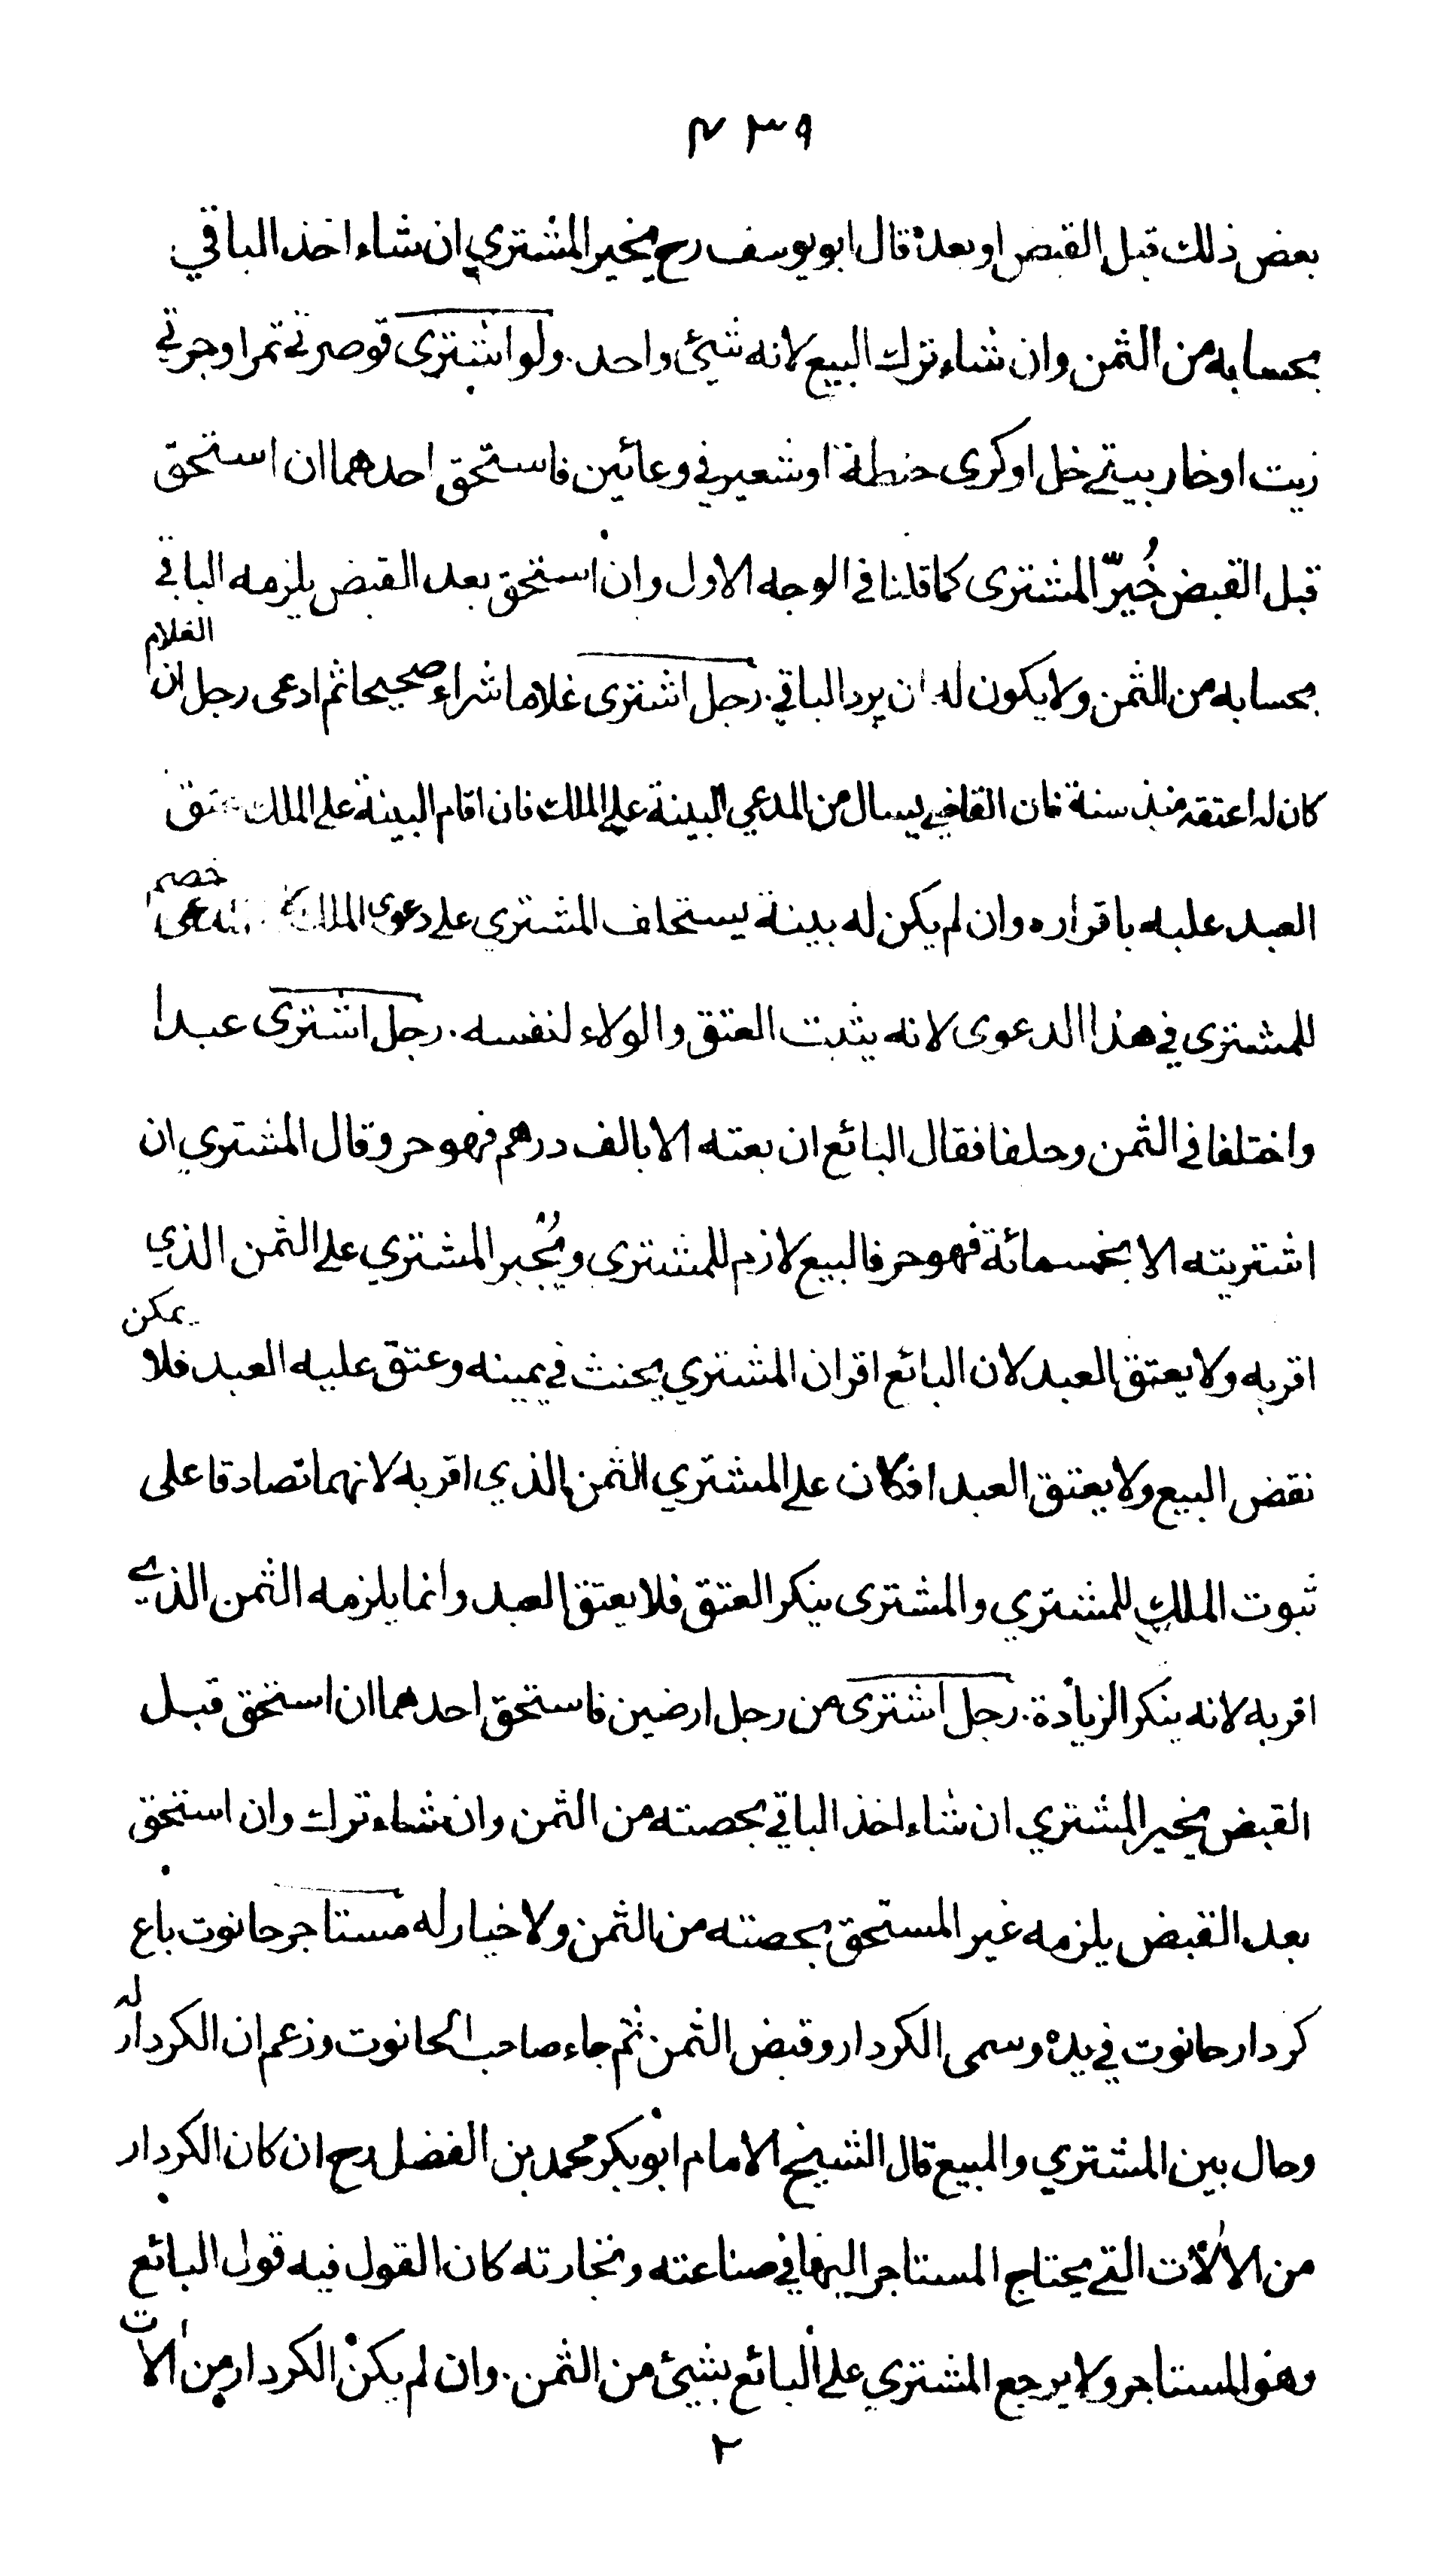 ٤٣٩
بعض ذلك قبل القبض او بعده قال ابو يوسف رح يخير المشتري ان شاء اخذ الباقي
بحسابه من الثمن وان شاء ترك البيع لانه شيئ واحد. ولو اشترى قوصرتي تمر او جرتي
زيت او خابيتي خل او كرى حنطة او شعير في وعائين فاستحق احدهما ان استحق
قبل القبض خُيّر المشترى كما قلنا في الوجه الاول وان استحق بعد القبض يلزمه الباقي
بحسابه من الثمن ولا يكون له ان يرد الباقي. رجل اشترى غلاما شراء صحيحا ثم ادعى رجل ان الغلام
كان له اعتقه منذ سنة فان القاضي يسال من المدعي البينة على الملك فان اقام البينة على الملك عتق
العبد عليه باقراره وان لم يكن له بينة يستحلف المشتري على دعوى الملك خصم
للمشترى في هذا الدعوى لانه يثبت العتق والولاء لنفسه. رجل اشترى عبدا
واختلفا في الثمن وحلفا فقال البائع ان بعته الا بالف درهم فهو حر وقال المشتري ان
اشتريته الا بخمسمائة فهو حر فالبيع لازم للمشترى ويُجبر المشتري على الثمن الذي
اقربه ولا يعتق العبد لان البائع اقر ان المشتري يحنث في يمينه وعتق عليه العبد فلا يمكن
نقض البيع ولا يعتق العبد افكان على المشتري الثمن الذي اقربه لانهما تصادقا على
ثبوت الملك للمشتري والمشترى ينكر العتق فلا يعتق العبد وانما يلزمه الثمن الذي
اقربه لانه ينكر الزيادة. رجل اشترى من رجل ارضين فاستحق احدهما ان استحق قبل
القبض يخير المشتري ان شاء اخذ الباقي بحصته من الثمن وان شاء ترك وان استحق
بعد القبض يلزمه غير المستحق بحصته من الثمن ولا خيار له مستاجر حانوت باع
كردار حانوت في يده وسمى الكردار وقبض الثمن ثم جاء صاحب الحانوت وزعم ان الكردار له
وحال بين المشتري والمبيع قال الشيخ الامام ابو بكر محمد بن الفضل رح ان كان الكردار
من الالات التي يحتاج المستاجر اليها في صناعته وتجارته كان القول فيه قول البائع
وهو المستاجر ولا يرجع المشتري على البائع بشيئ من الثمن. وان لم يكن الكردار من الالات
٢